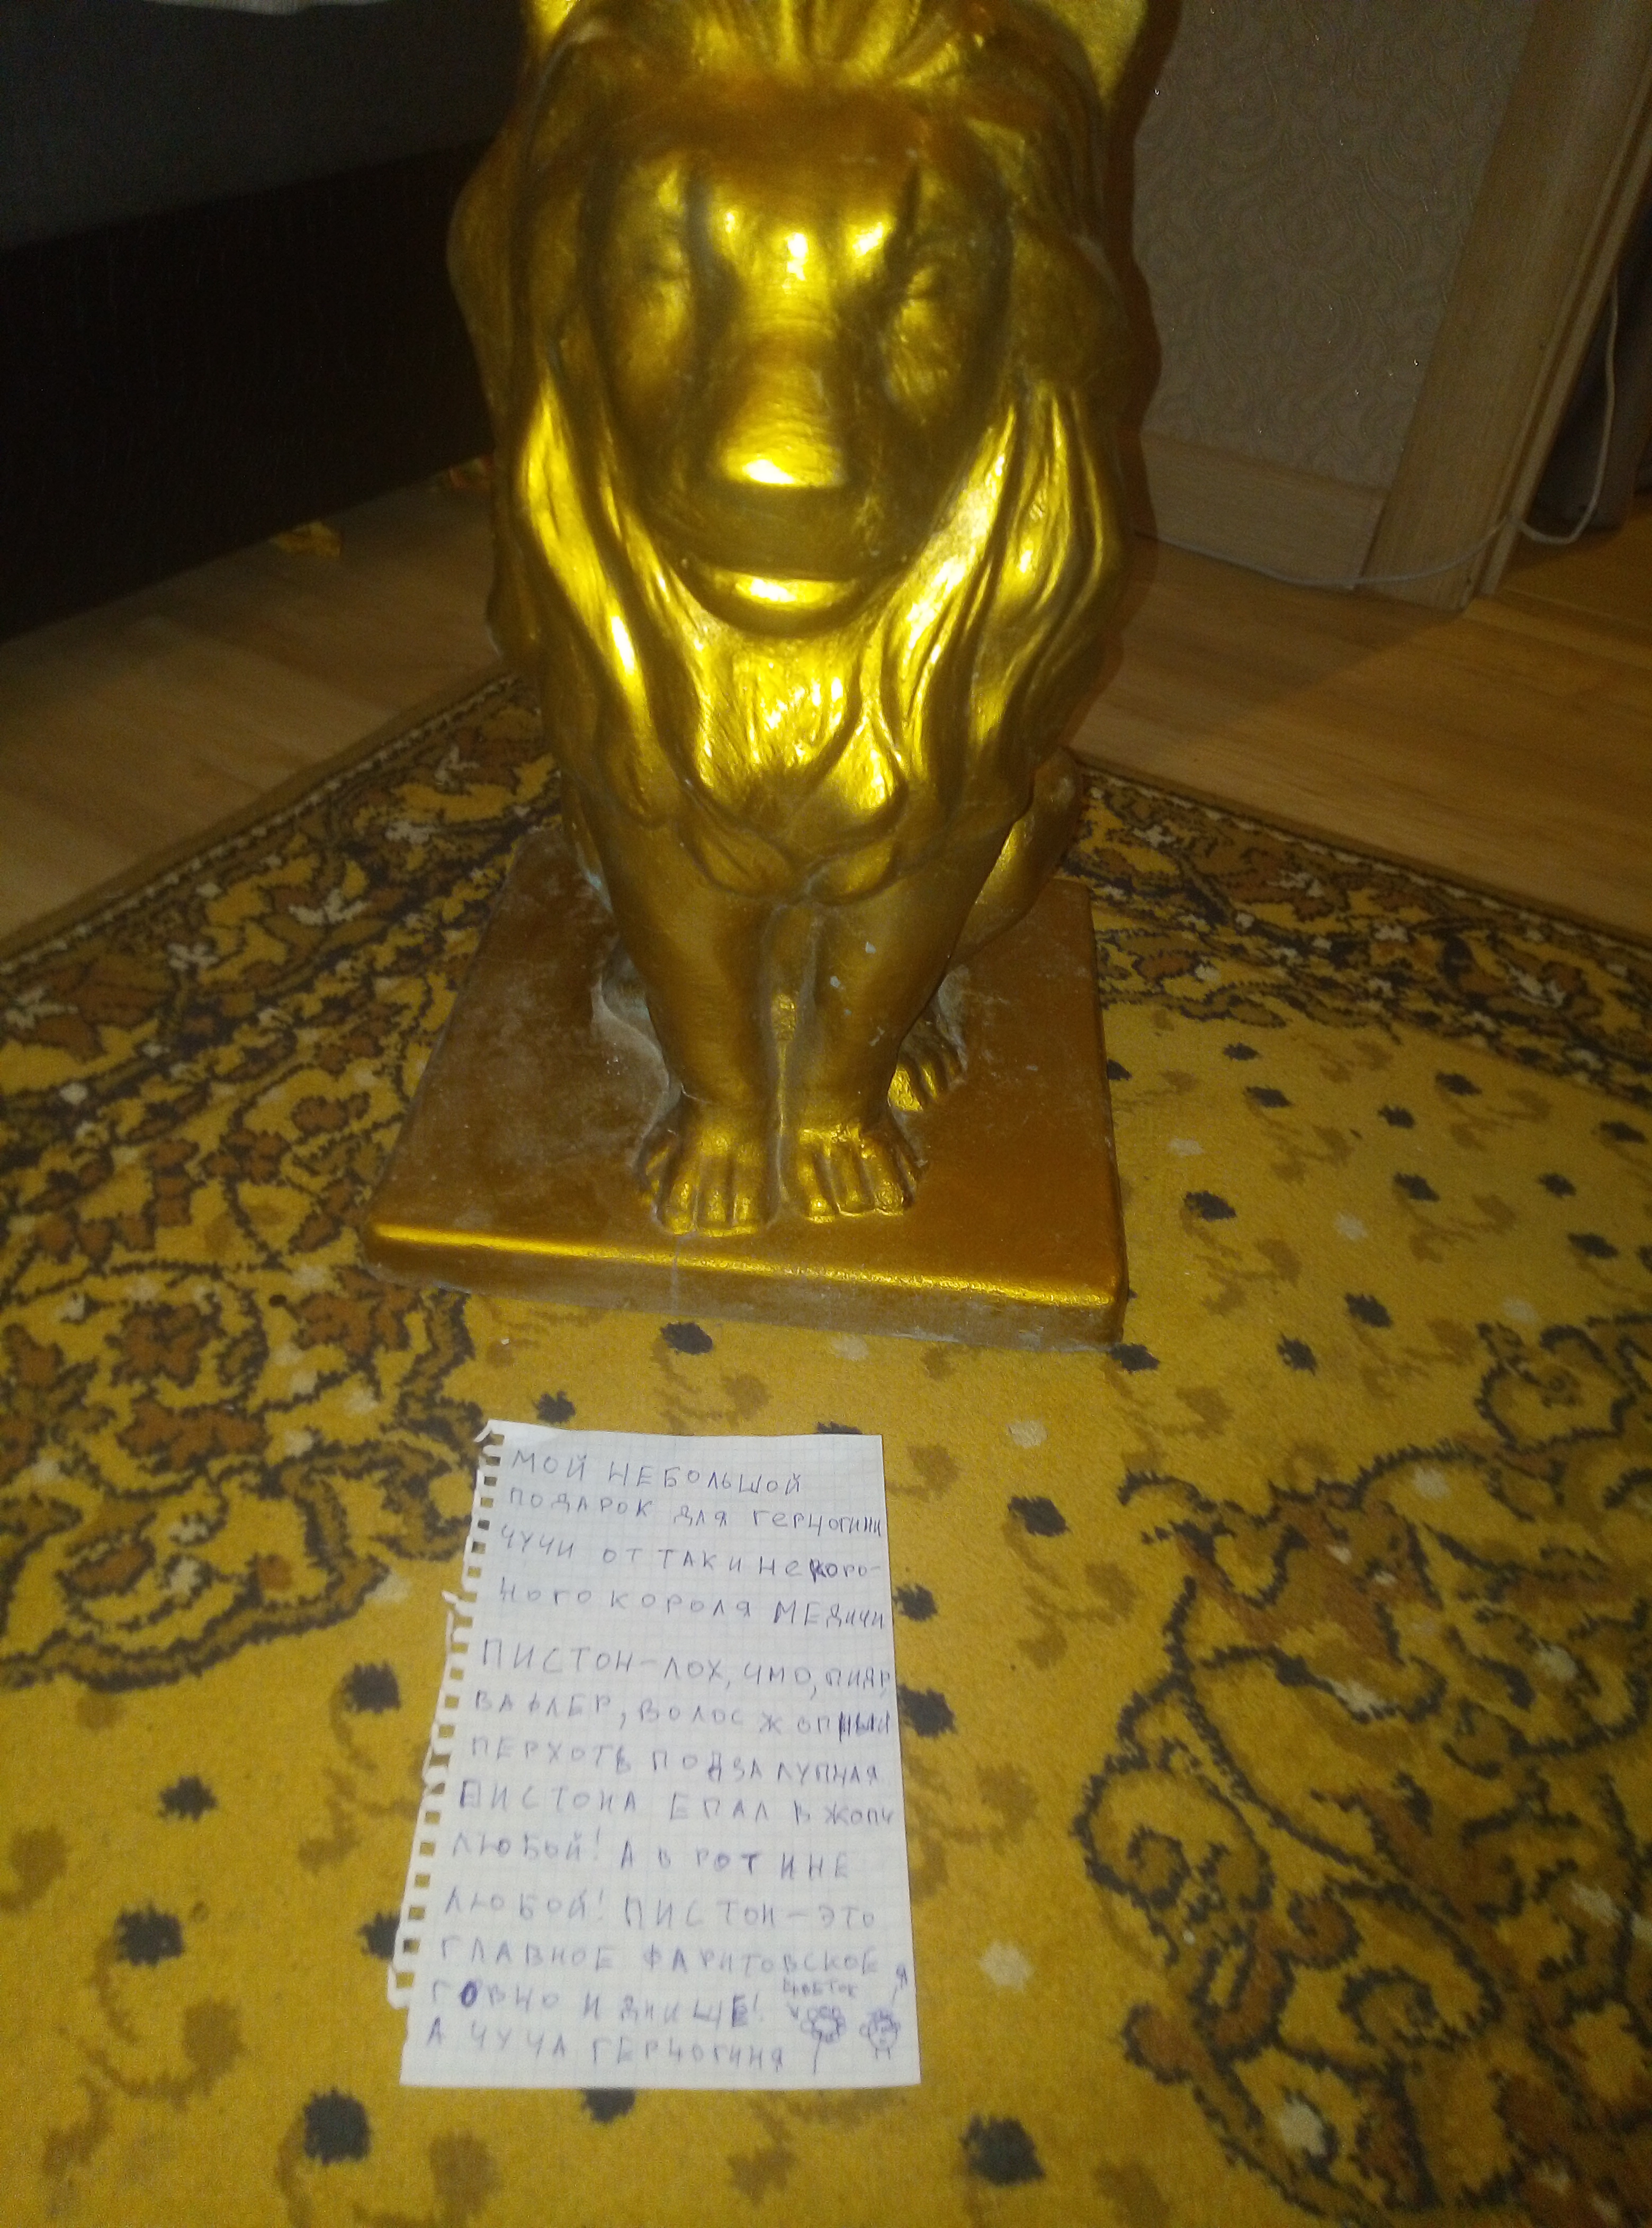 МОЙ НЕБОЛЬШОЙ
ПОДАРОК ДЛЯ ГЕРЦОГИНИ
ЧУЧИ ОТ ТАКИ НЕКОРО-
НОГО КОРОЛЯ МЕДИЧИ
ПИСТОН-ЛОХ, ЧМО,
ВАФЛЕР, ВОЛОС ЖОПНЫЙ
ПЕРХОТЬ ПОДЗАЛУПНАЯ
ПИСТОНА ЕПАЛ В ЖОПУ
ЛЮБОЙ! А В РОТ И НЕ
ЛЮБОЙ! ПИСТОН-ЭТО
ГЛАВНОЕ ФАРИТОВСКОЕ
ГОВНО И ДНИЩЕ!
Я
А ЧУЧА ГЕРЦОГИНЯ